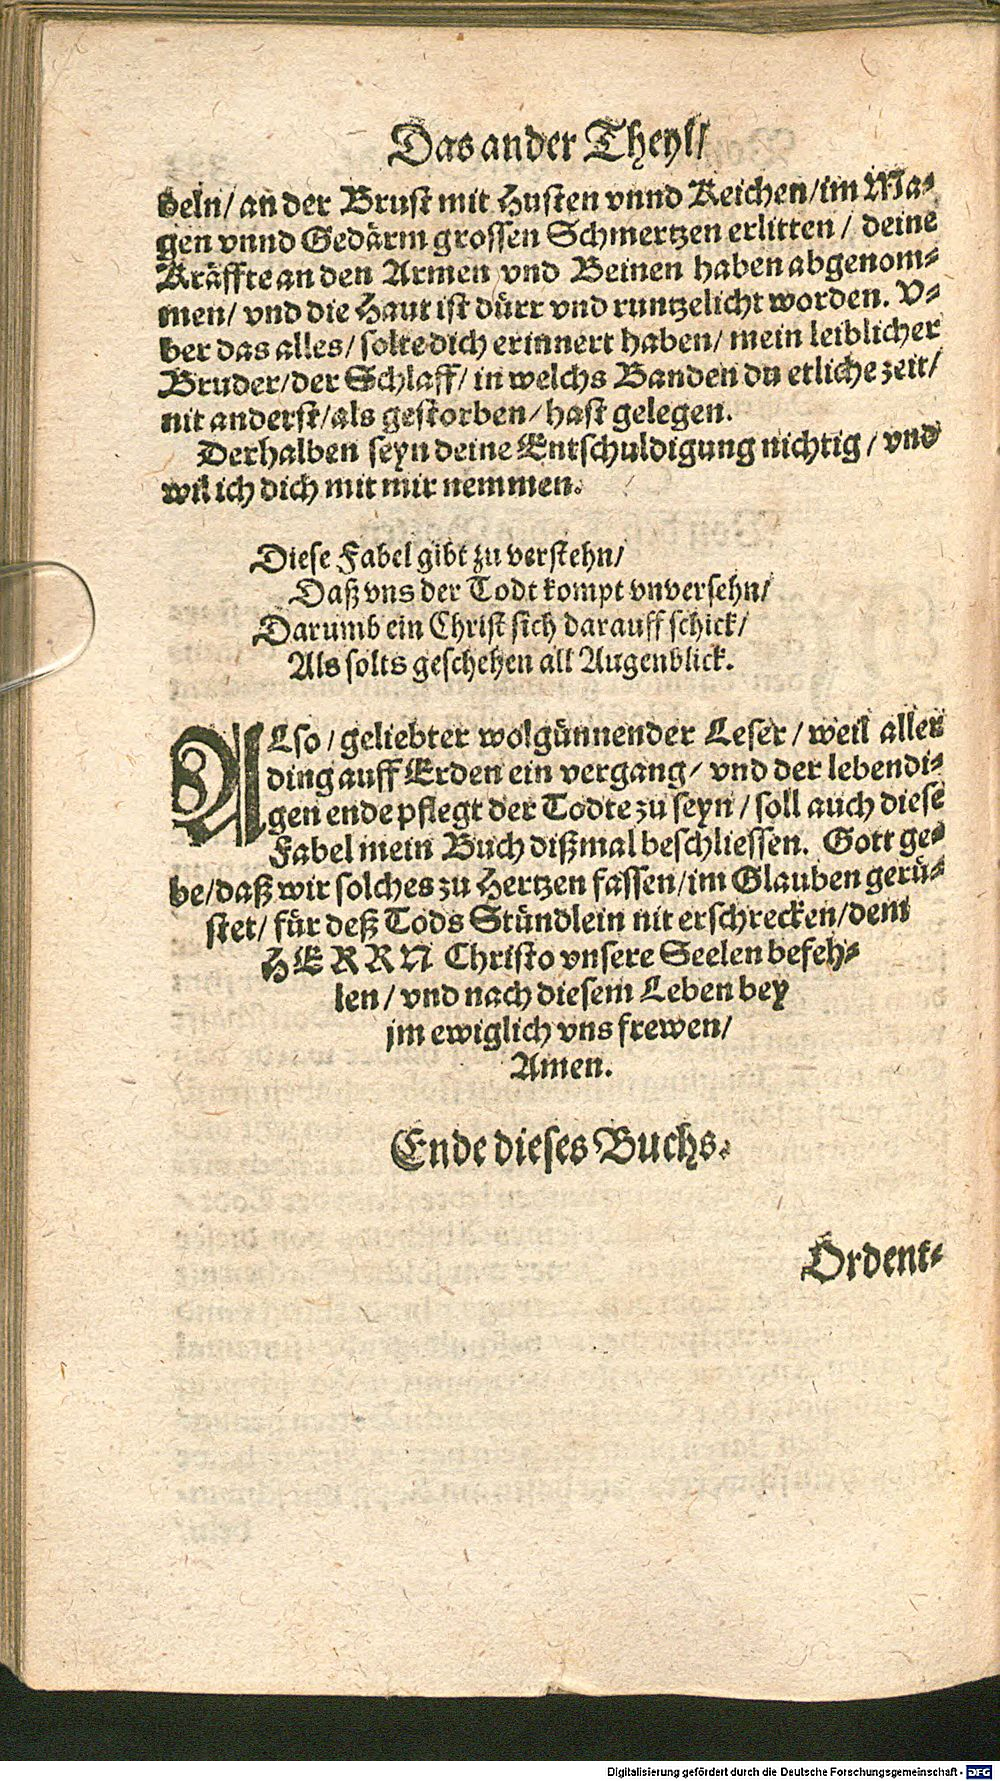 Das ander Theyl/
beln/ an der Brust mit Husten vnnd Keichen/im Ma-
gen vnnd Gedärm grossen Schmertzen erlitten / deine
Kräffte an den Armen vnd Beinen haben abgenom-
men/ vnd die Haut ist dürr vnd runtzelicht worden. V-
ber das alles/ solte dich erinnert haben/ mein leiblicher
Bruder/der Schlaff/ in welchs Banden du etliche zeit/
nit anderst/als gestorben/ hast gelegen.
Derhalben seyn deine Entschuldigung nichtig / vnd
wil ich dich mit mir nemmen.
Diese Fabel gibt zu verstehn/
Daß vns der Todt kompt vnversehn/
Darumb ein Christ sich darauff schick/
Als solts geschehen all Augenblick.
ALso / geliebter wolgünnender Leser / weil aller
ding auff Erden ein vergang/ vnd der lebendi-
gen ende pflegt der Todte zu seyn / soll auch diese
Fabel mein Buch dißmal beschliessen. Gott ge-
be/daß wir solches zu Hertzen fassen/im Glauben gerü-
stet/ für deß Tods Stündlein nit erschrecken/dem
HERRN Christo vnsere Seelen befeh-
len / vnd nach diesem Leben bey
jm ewiglich vns frewen/
Amen.
Ende dieses Buchs.
Ordent-
Digitalisierung gefördert durch die Deutsche Forschungsgemeinschaft - DFG